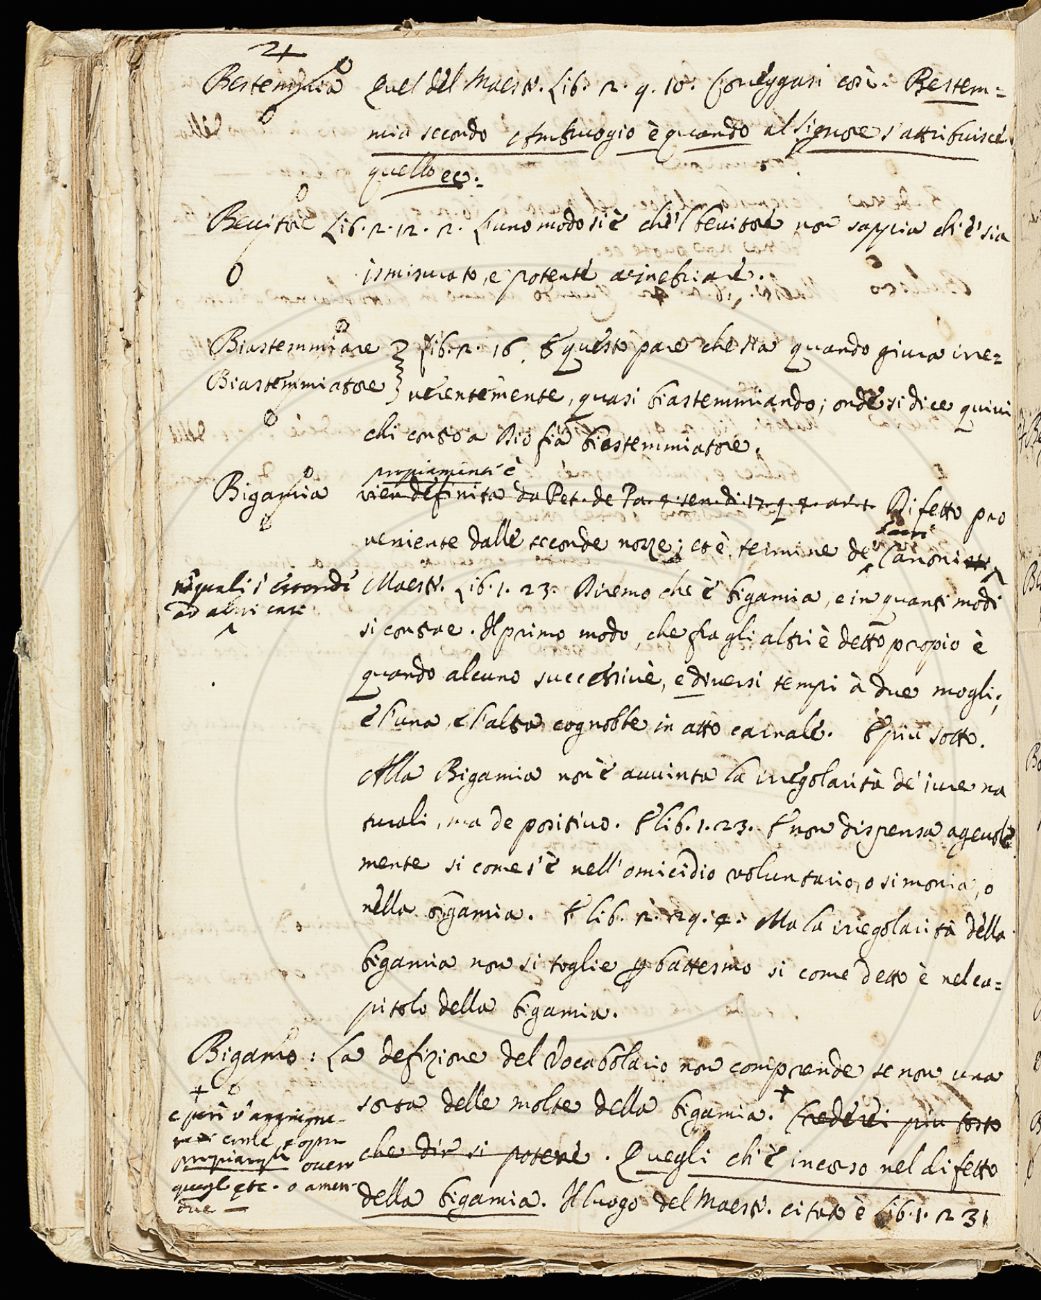 Bestemmia Quel del Maestr. Lib. 2. q. 10. Correggasi così. Bestem=
mia secondo Ambruogio è quando al Signore s'attribuisce
quello ec.
Bevitore Lib. 2. 12. 2. L'uno modo si è che 'l bevitore non sappia ch'e' sia
ismisurato, e potente a inebriare.
Biastemmiare Lib. 2. 16. E questo pare che sia quando giura irre=
Biastemmiatore verentemente, quasi biastemmiando; onde si dice quivi
chi contra Dio fia biestemmiatore.
propiamente è
Bigamia vien definita da Pet. de Pa. 4. sen. di 17. q. 4. ar. 1. Difetto pro
veniente dalle seconde nozze; et è termine de' Canoni
Sacri
a' quali s'estende
ad altri casi
Maestr. Lib. 1. 23. Diremo che è bigamia, e in quanti modi
si contrae. Il primo modo, che fra gli altri è detto propio è
quando alcuno successive, e diversi tempi à due mogli,
e l'una, e l'altra cognobbe in atto carnale. E più sotto.
Alla Bigamia non è avvinta la irregolarità de jure na
turali, ma de positivo. E lib. 1. 23. E non dispensa agevole
mente si come s'è nell'omicidio voluntario, o simonia, o
nella bigamia. E lib. 2. Ma la irregolarità della
bigamia non si toglie p battesmo si come detto è nel ca=
pitolo della bigamia.
Bigamo: La defizione del Vocabolario non comprende se non una
sorta delle molte della bigamia. + Crederei più tosto
che dir si potere. Quegli ch'è incorso nel difetto
della bigamia. Il luogo del Maestr. citato è Lib. 1. 23.
+
e però v'aggiugne-
civile
overo
quegl etc. o amen-
due